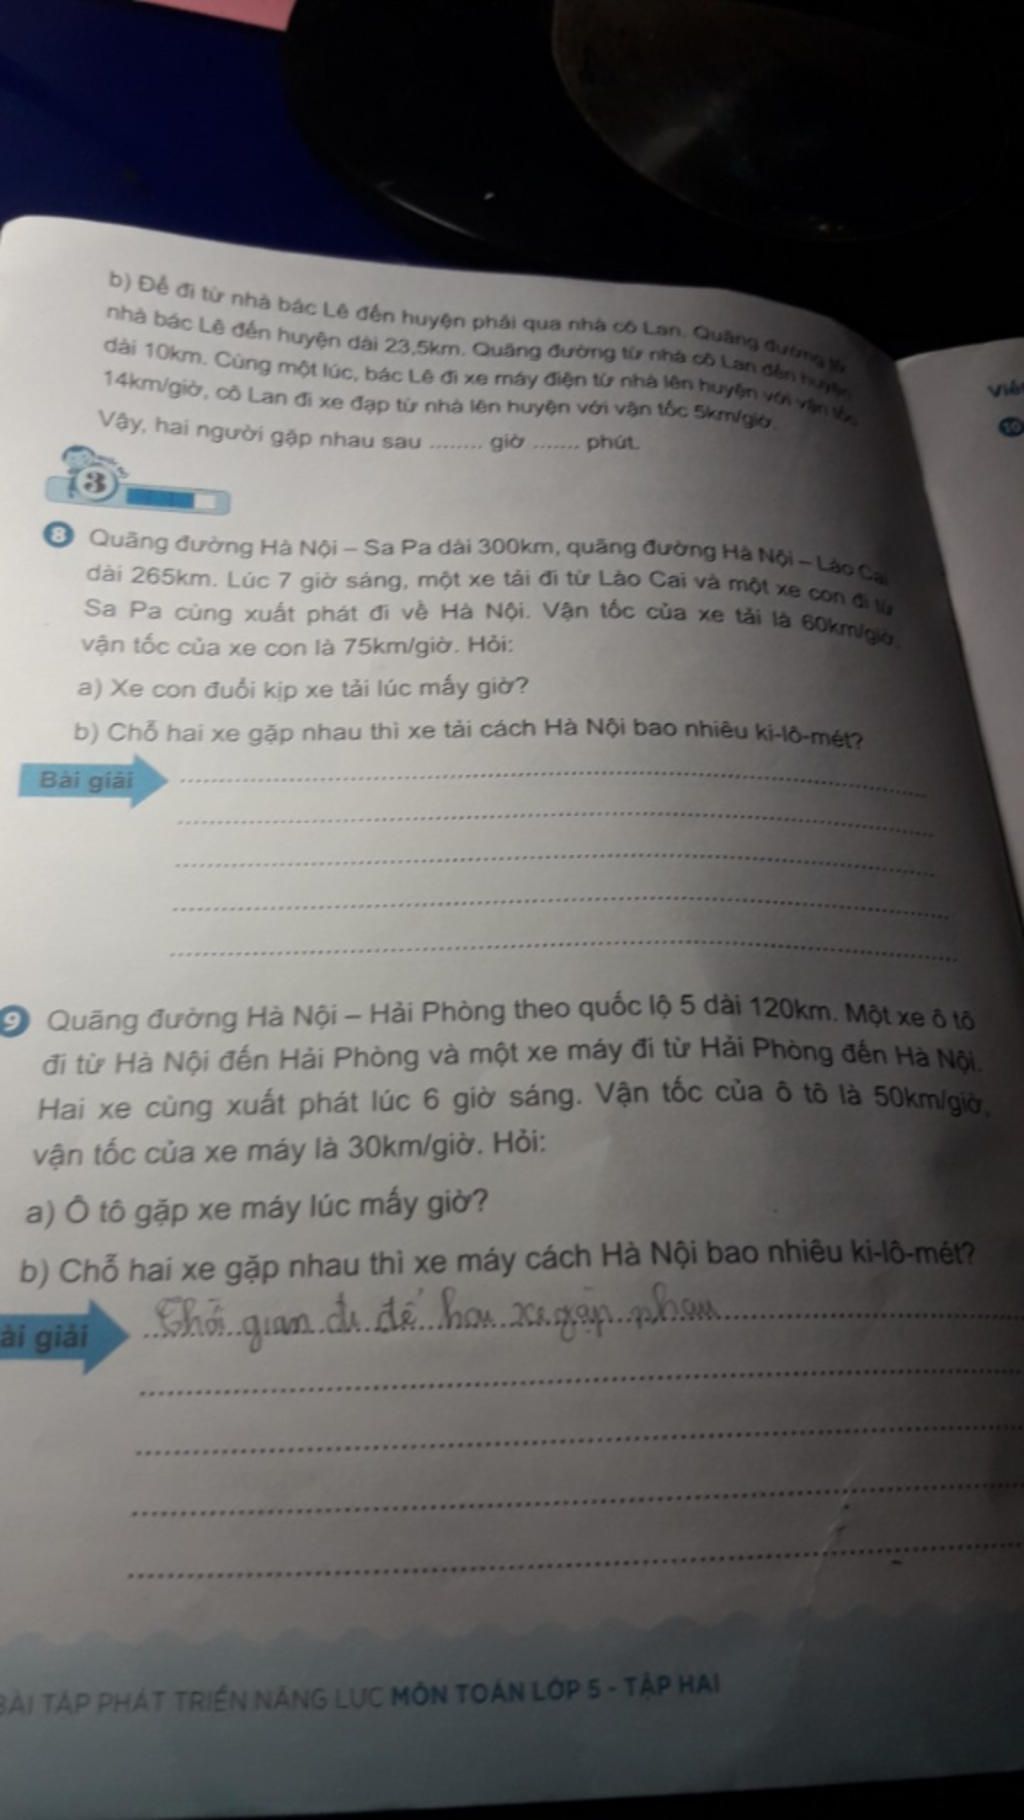 b) Để đi từ nhà bác Lê đến huyện phải qua nhà cô Lan. Quãng đường từ
nhà bác Lê đến huyện dài 23,5km. Quãng đường từ nhà cô Lan đến huyện
dài 10km. Cùng một lúc, bác Lê đi xe máy điện từ nhà lên huyện với vận tốc
14km/giờ, cô Lan đi xe đạp từ nhà lên huyện với vận tốc 5km/giờ.
Vậy, hai người gặp nhau sau ........ giờ ....... phút.
3
8 Quãng đường Hà Nội – Sa Pa dài 300km, quãng đường Hà Nội – Lào Cai
dài 265km. Lúc 7 giờ sáng, một xe tải đi từ Lào Cai và một xe con đi từ
Sa Pa cùng xuất phát đi về Hà Nội. Vận tốc của xe tải là 60km/giờ,
vận tốc của xe con là 75km/giờ. Hỏi:
a) Xe con đuổi kịp xe tải lúc mấy giờ?
b) Chỗ hai xe gặp nhau thì xe tải cách Hà Nội bao nhiêu ki-lô-mét?
Bài giải
9 Quãng đường Hà Nội – Hải Phòng theo quốc lộ 5 dài 120km. Một xe ô tô
đi từ Hà Nội đến Hải Phòng và một xe máy đi từ Hải Phòng đến Hà Nội.
Hai xe cùng xuất phát lúc 6 giờ sáng. Vận tốc của ô tô là 50km/giờ,
vận tốc của xe máy là 30km/giờ. Hỏi:
a) Ô tô gặp xe máy lúc mấy giờ?
b) Chỗ hai xe gặp nhau thì xe máy cách Hà Nội bao nhiêu ki-lô-mét?
ài giải Thời gian đi để hai xe gặp nhau
BÀI TẬP PHÁT TRIỂN NĂNG LỰC MÔN TOÁN LỚP 5 - TẬP HAI
Viế
10